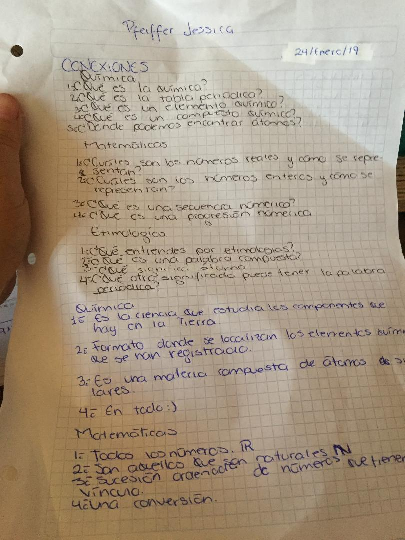 Pfeiffer Jessica
24/Enero/19
CONEXIONES
Química
1:¿Qué es la química?
2:¿Qué es la tabla periódica?
3:¿Qué es un elemento químico?
4:¿Qué es un compuesto químico?
5:¿Donde podemos encontrar átomos?
Matemáticas
1:¿Cuáles son los números reales y cómo se repre-
sentan?
2:¿Cuáles son los números enteros y cómo se
representan?
3:¿Qué es una secuencia numérica?
4:¿Que es una progresión númerica
Etimologias
1:¿Qué entiendes por etimologias?
2:¿Qué es una palabra compuesta?
3:¿Qué significa átomo
4:¿Qué otro significado puede tener la palabra
periódica?
Química
1= Es la ciencia que estudia los componentes que
hay en la Tierra
2= Formato donde se localizan los elementos
que se han registrado.
3= Es una materia compuesta de átomos
lares.
4= En todo:)
Matemáticas
1= Todos los números. IR
2= Son aquellos que son naturales IN
3= Sucesión ordenación de números que tienen
vínculo.
4= Una conversión.